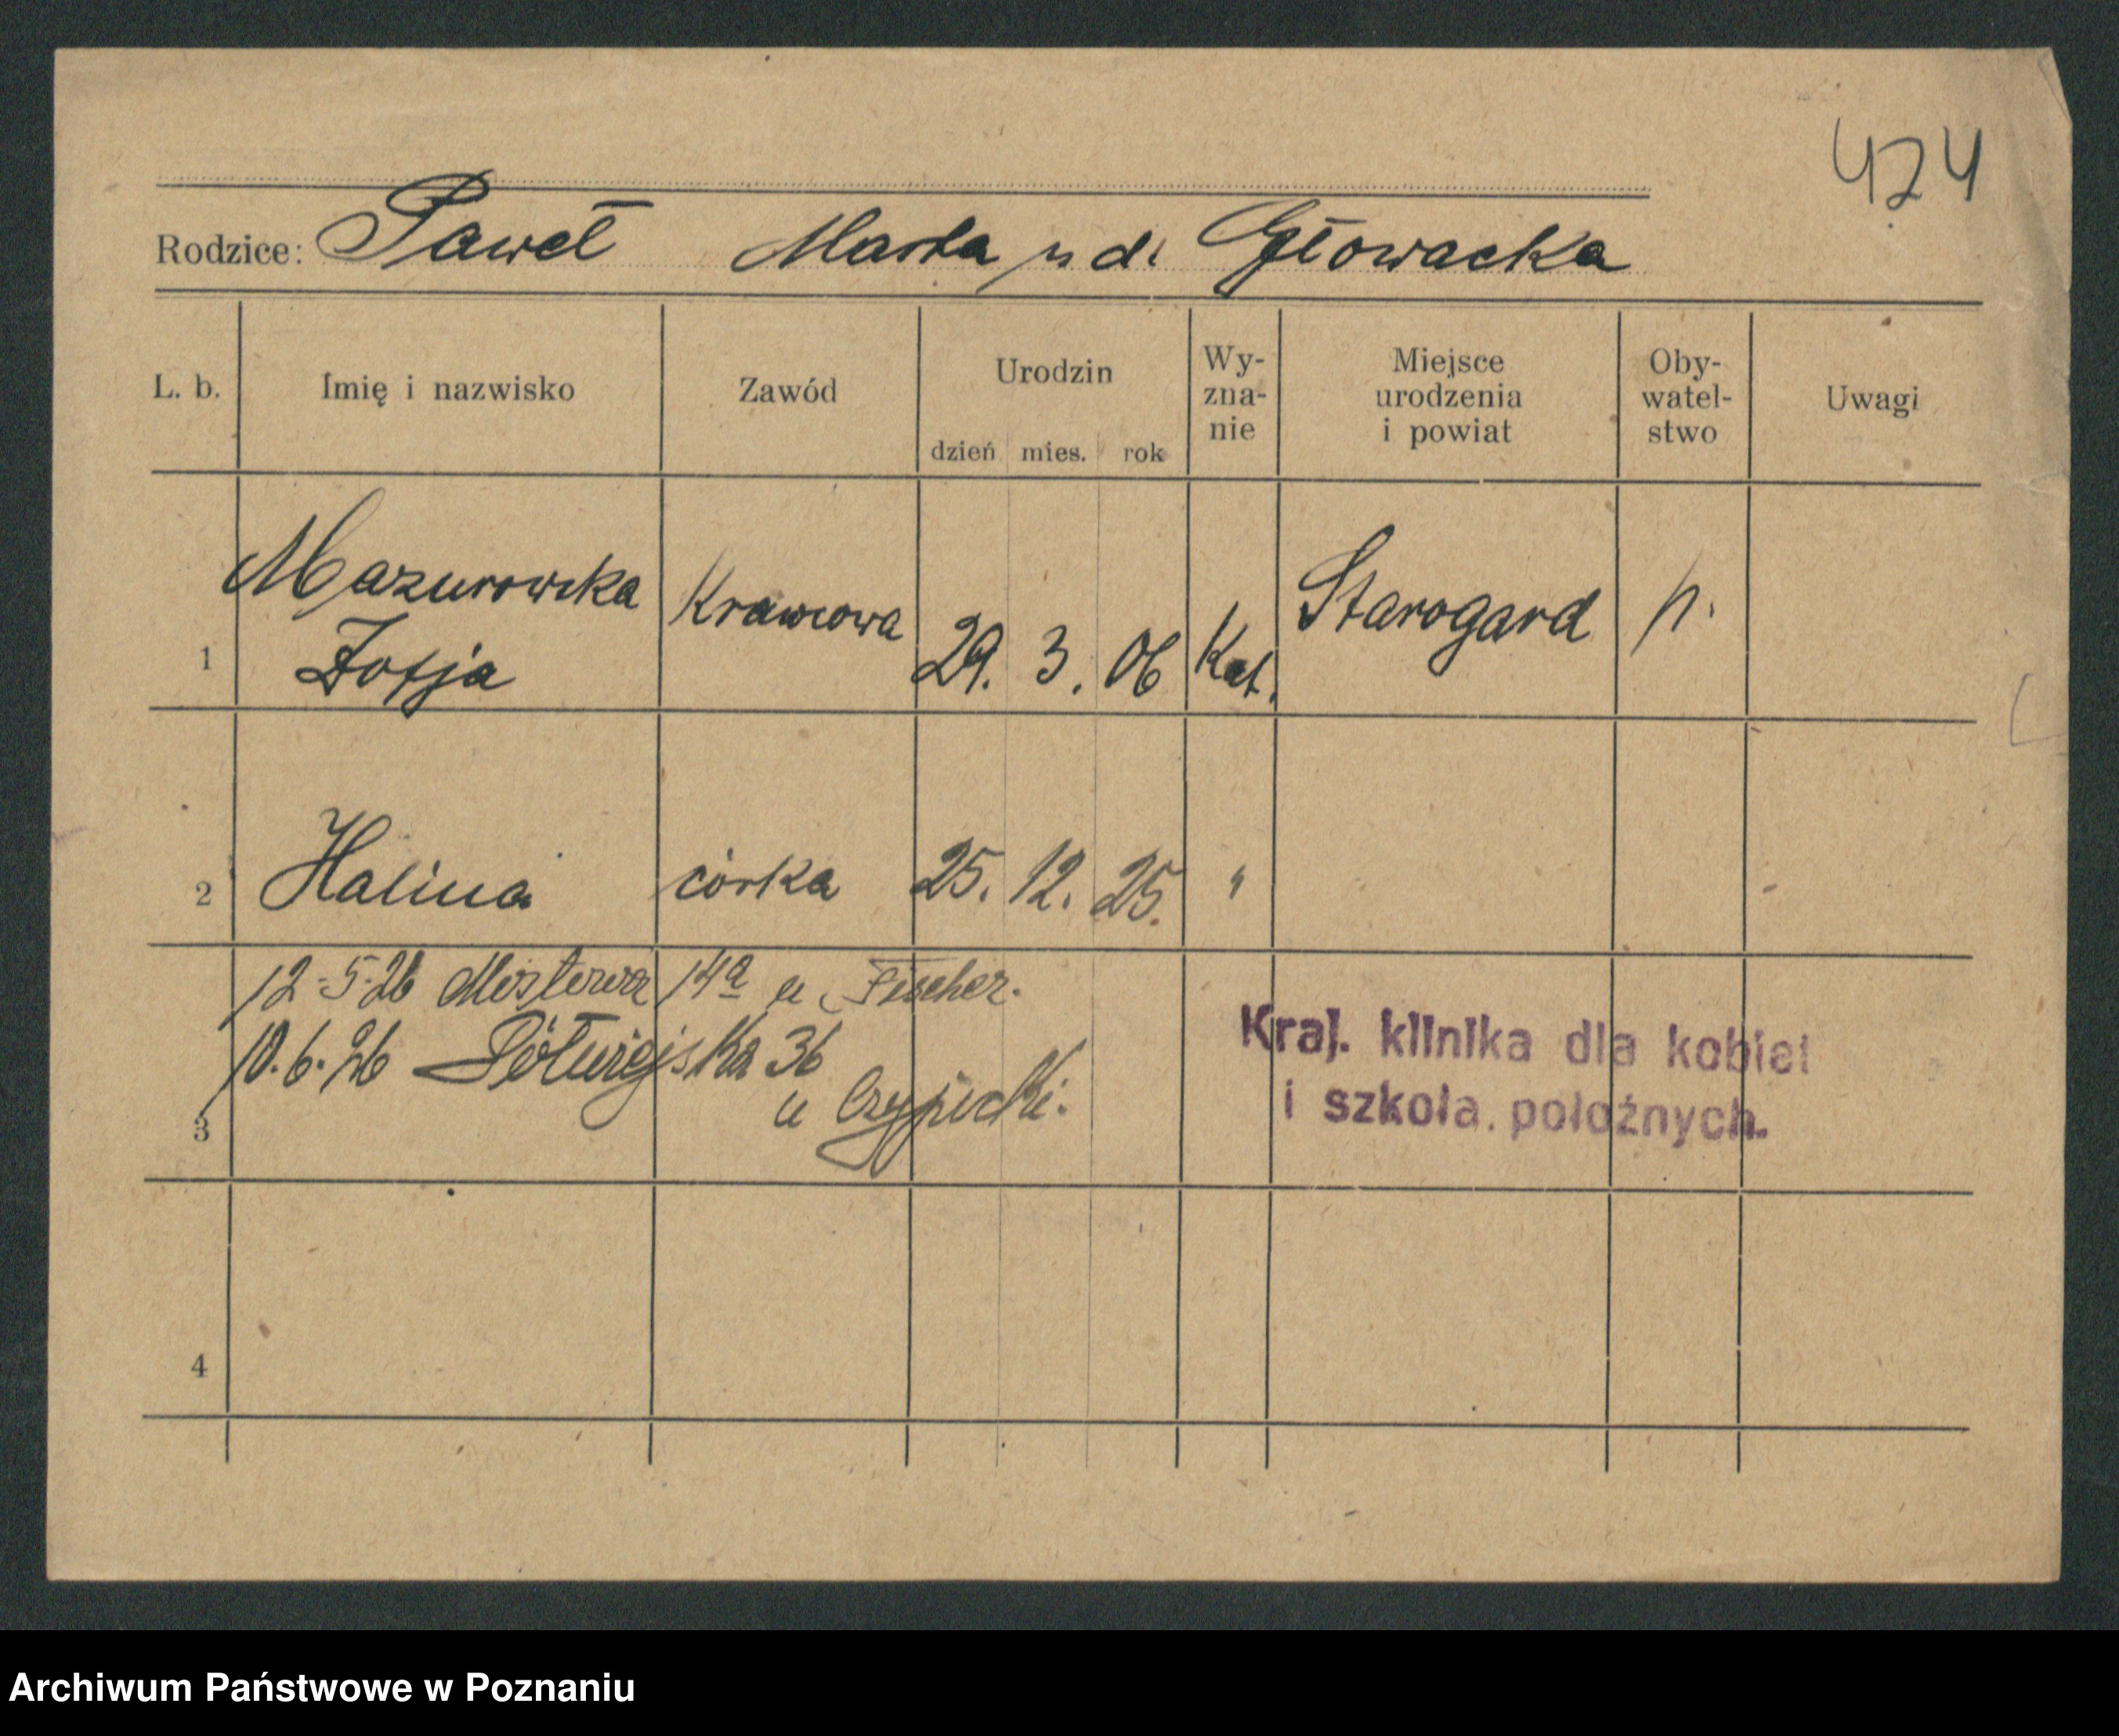 474
Rodzice: Paweł Marta u d. Głowacka
L. b. Imię i nazwisko Zawód Urodzin dzień mies. rok Wy-zna-nie Miejsce urodzenia i powiat Oby-watel-stwo Uwagi
1 Mazurowska Zofja Krawcowa 29. 3. 06 Kat. Starogard p.
2 Halina córka 25. 12. 25. "
12-5-26 Mostowa 14a u Fischer.
10.6.26 36
3 u
Kraj. klinika dla kobiet
i szkoła. położnych.
4
Archiwum Państwowe w Poznaniu